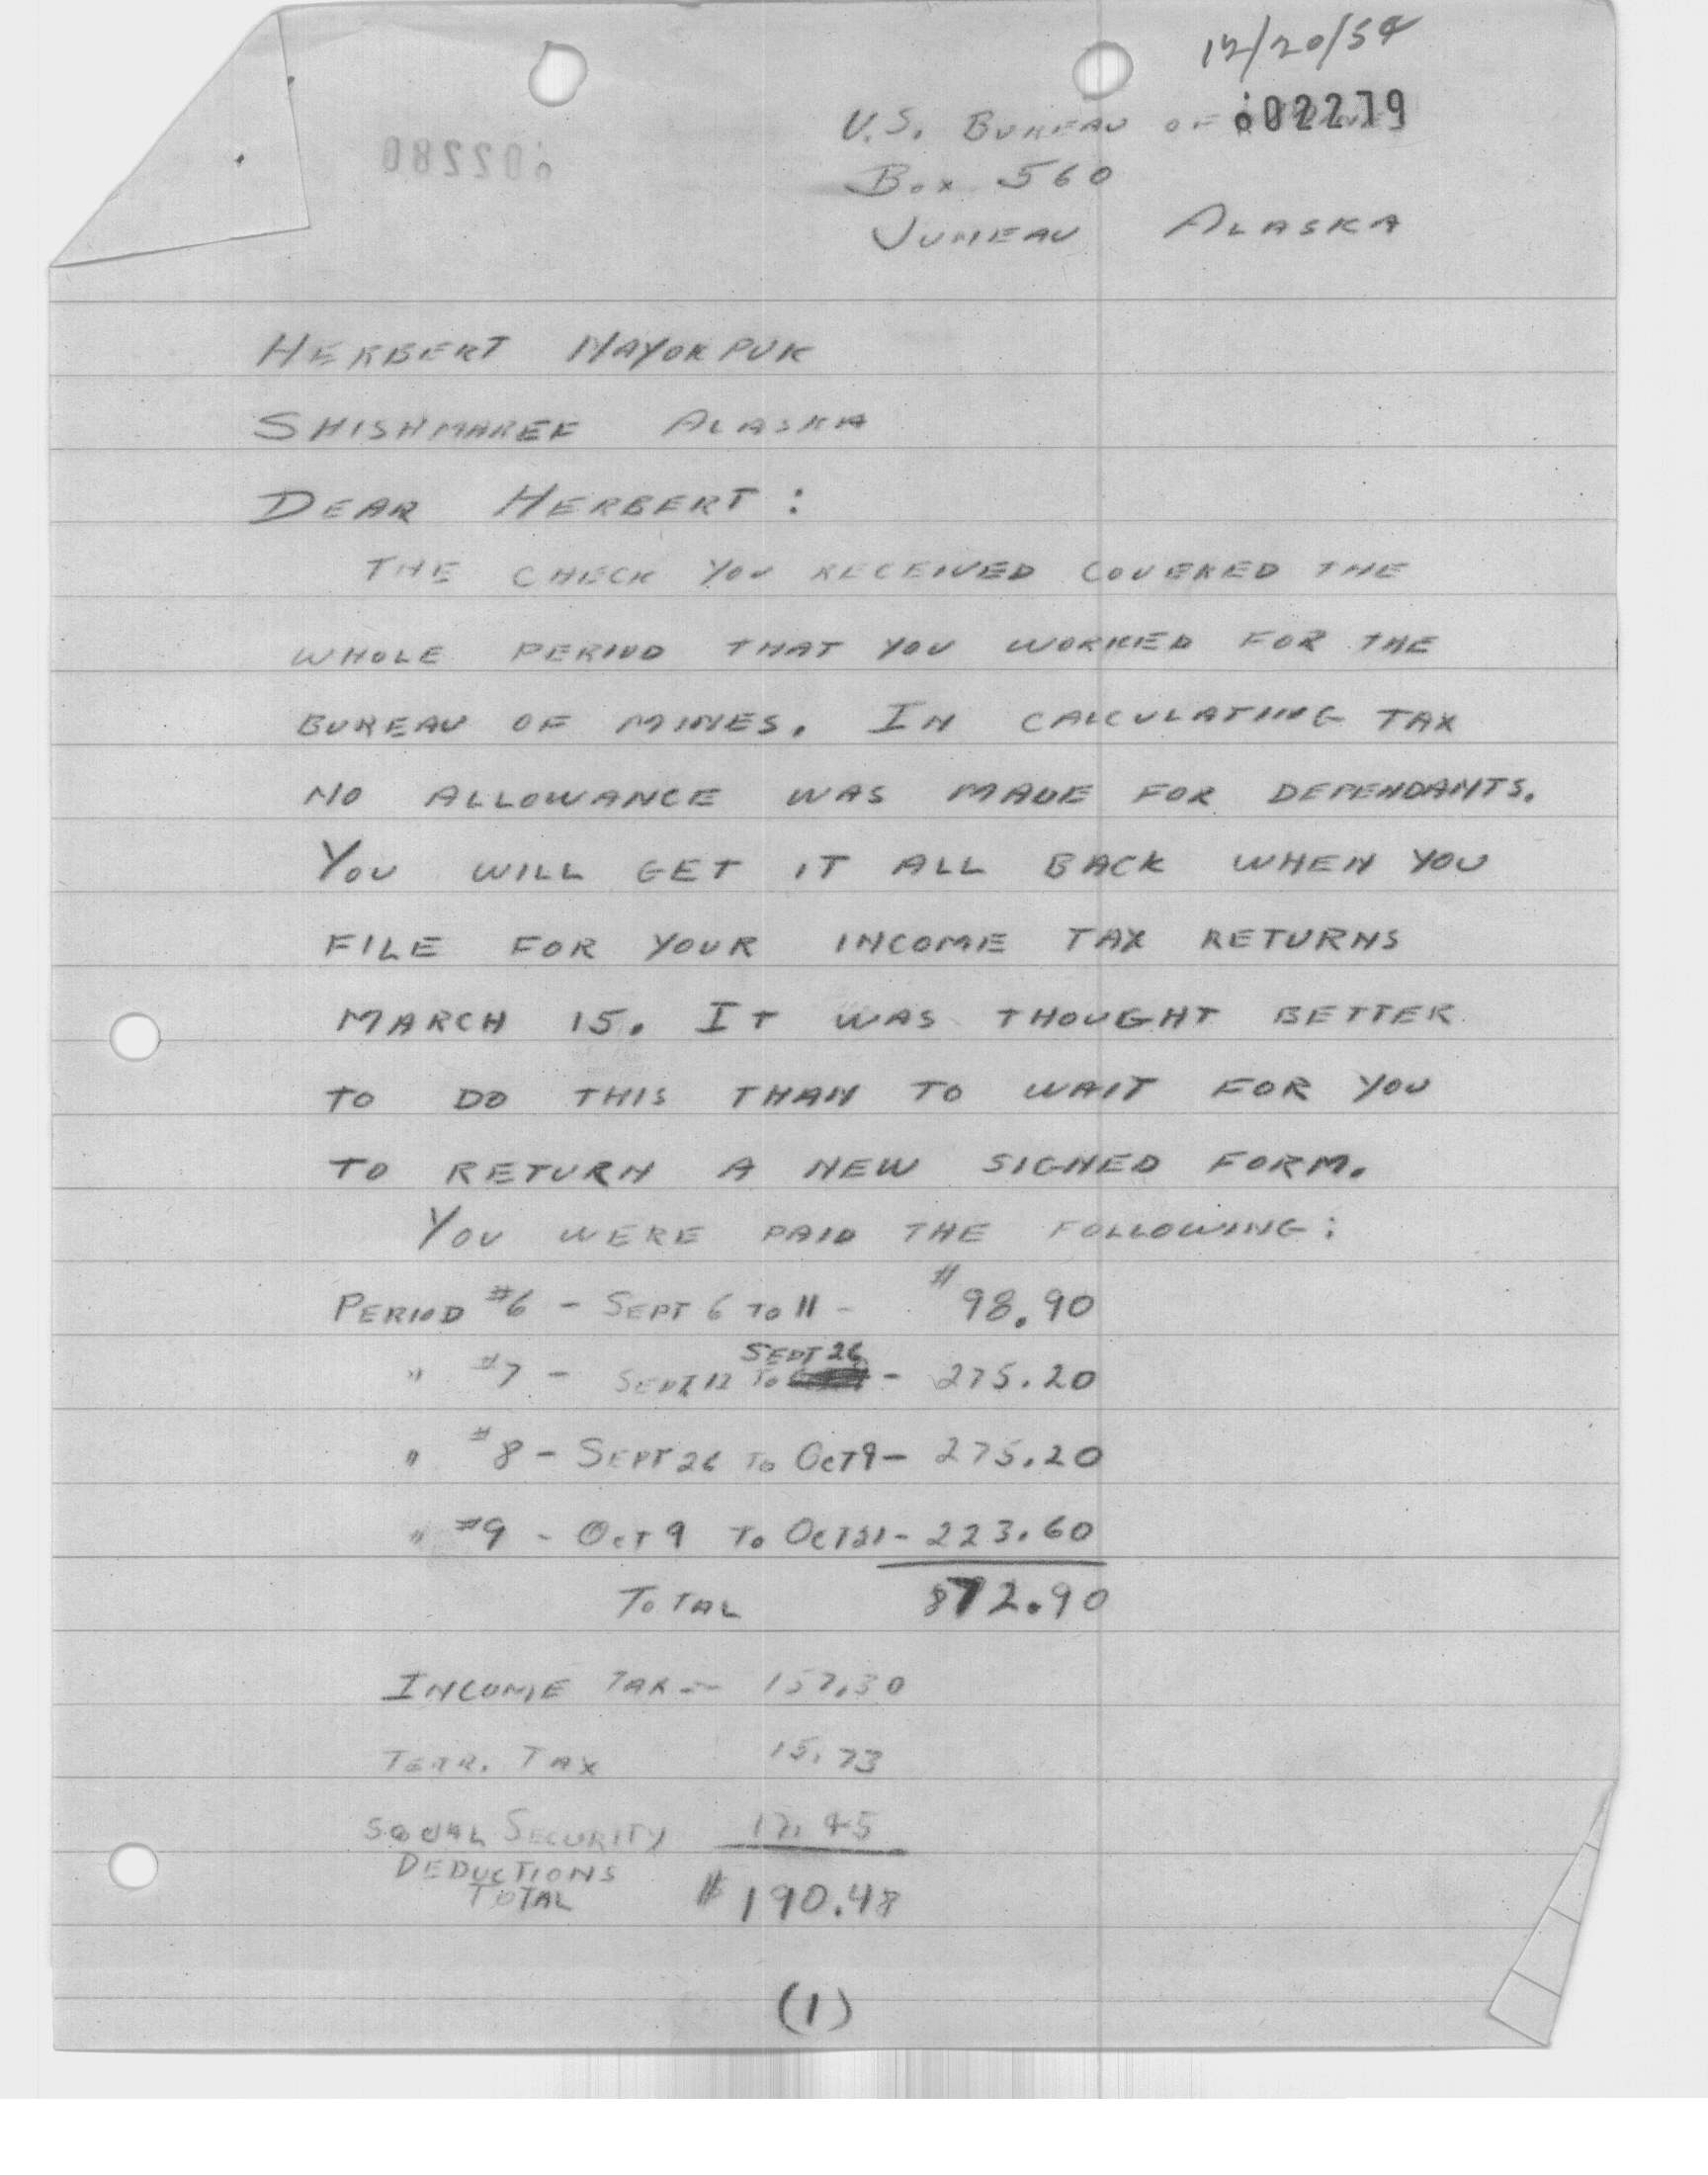 12/20/54
002279
U.S. BUREAU OF MINES
BOX 560
JUNEAU ALASKA
002280
HERBERT NAYOKPUK
SHISHMAREF ALASKA
DEAR HERBERT:
THE CHECK YOU RECEIVED COVERED THE
WHOLE PERIOD THAT YOU WORKED FOR THE
BUREAU OF MINES. IN CALCULATING TAX
NO ALLOWANCE WAS MADE FOR DEPENDANTS.
YOU WILL GET IT ALL BACK WHEN YOU
FILE FOR YOUR INCOME TAX RETURNS
MARCH 15. IT WAS THOUGHT BETTER
TO DO THIS THAN TO WAIT FOR YOU
TO RETURN A NEW SIGNED FORM.
YOU WERE PAID THE FOLLOWING:
PERIOD #6 - SEPT 6 TO 11 - $98.90
" #7 - SEPT 12 TO SEPT 26 - 275.20
" #8 - SEPT 26 TO OCT 9 - 275.20
" #9 - OCT 9 TO OCT 21 - 223.60
TOTAL 872.90
INCOME TAX - 157.30
TERR. TAX 15.73
SOCIAL SECURITY 17.45
DEDUCTIONS
TOTAL $190.48
(1)